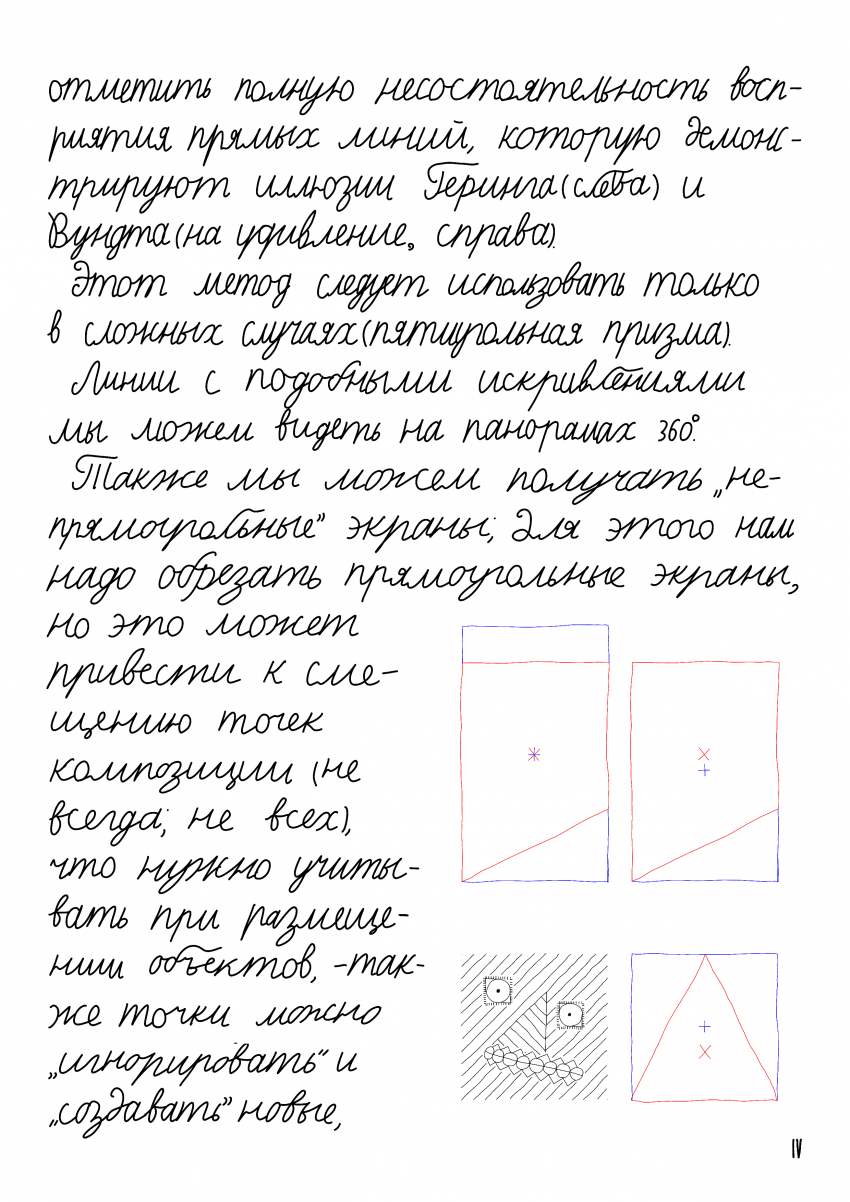 отметить полную несостоятельность восп-
риятия прямых линий, которую демонс-
трируют иллюзии Геринга(слева) и
Вундта(на удивление, справа).
Этот метод следует использовать только
в сложных случаях(пятиугольная призма).
Линии с подобными искривлениями
мы можем видеть на панорамах 360°.
Также мы можем получать „не-
прямоугольные” экраны; для этого нам
надо обрезать прямоугольные экраны,
но это может
привести к сме-
щению точек
композиции (не
всегда; не всех),
что нужно учиты-
вать при размеще-
нии объектов, -так-
же точки можно
„игнорировать” и
„создавать” новые,
IV